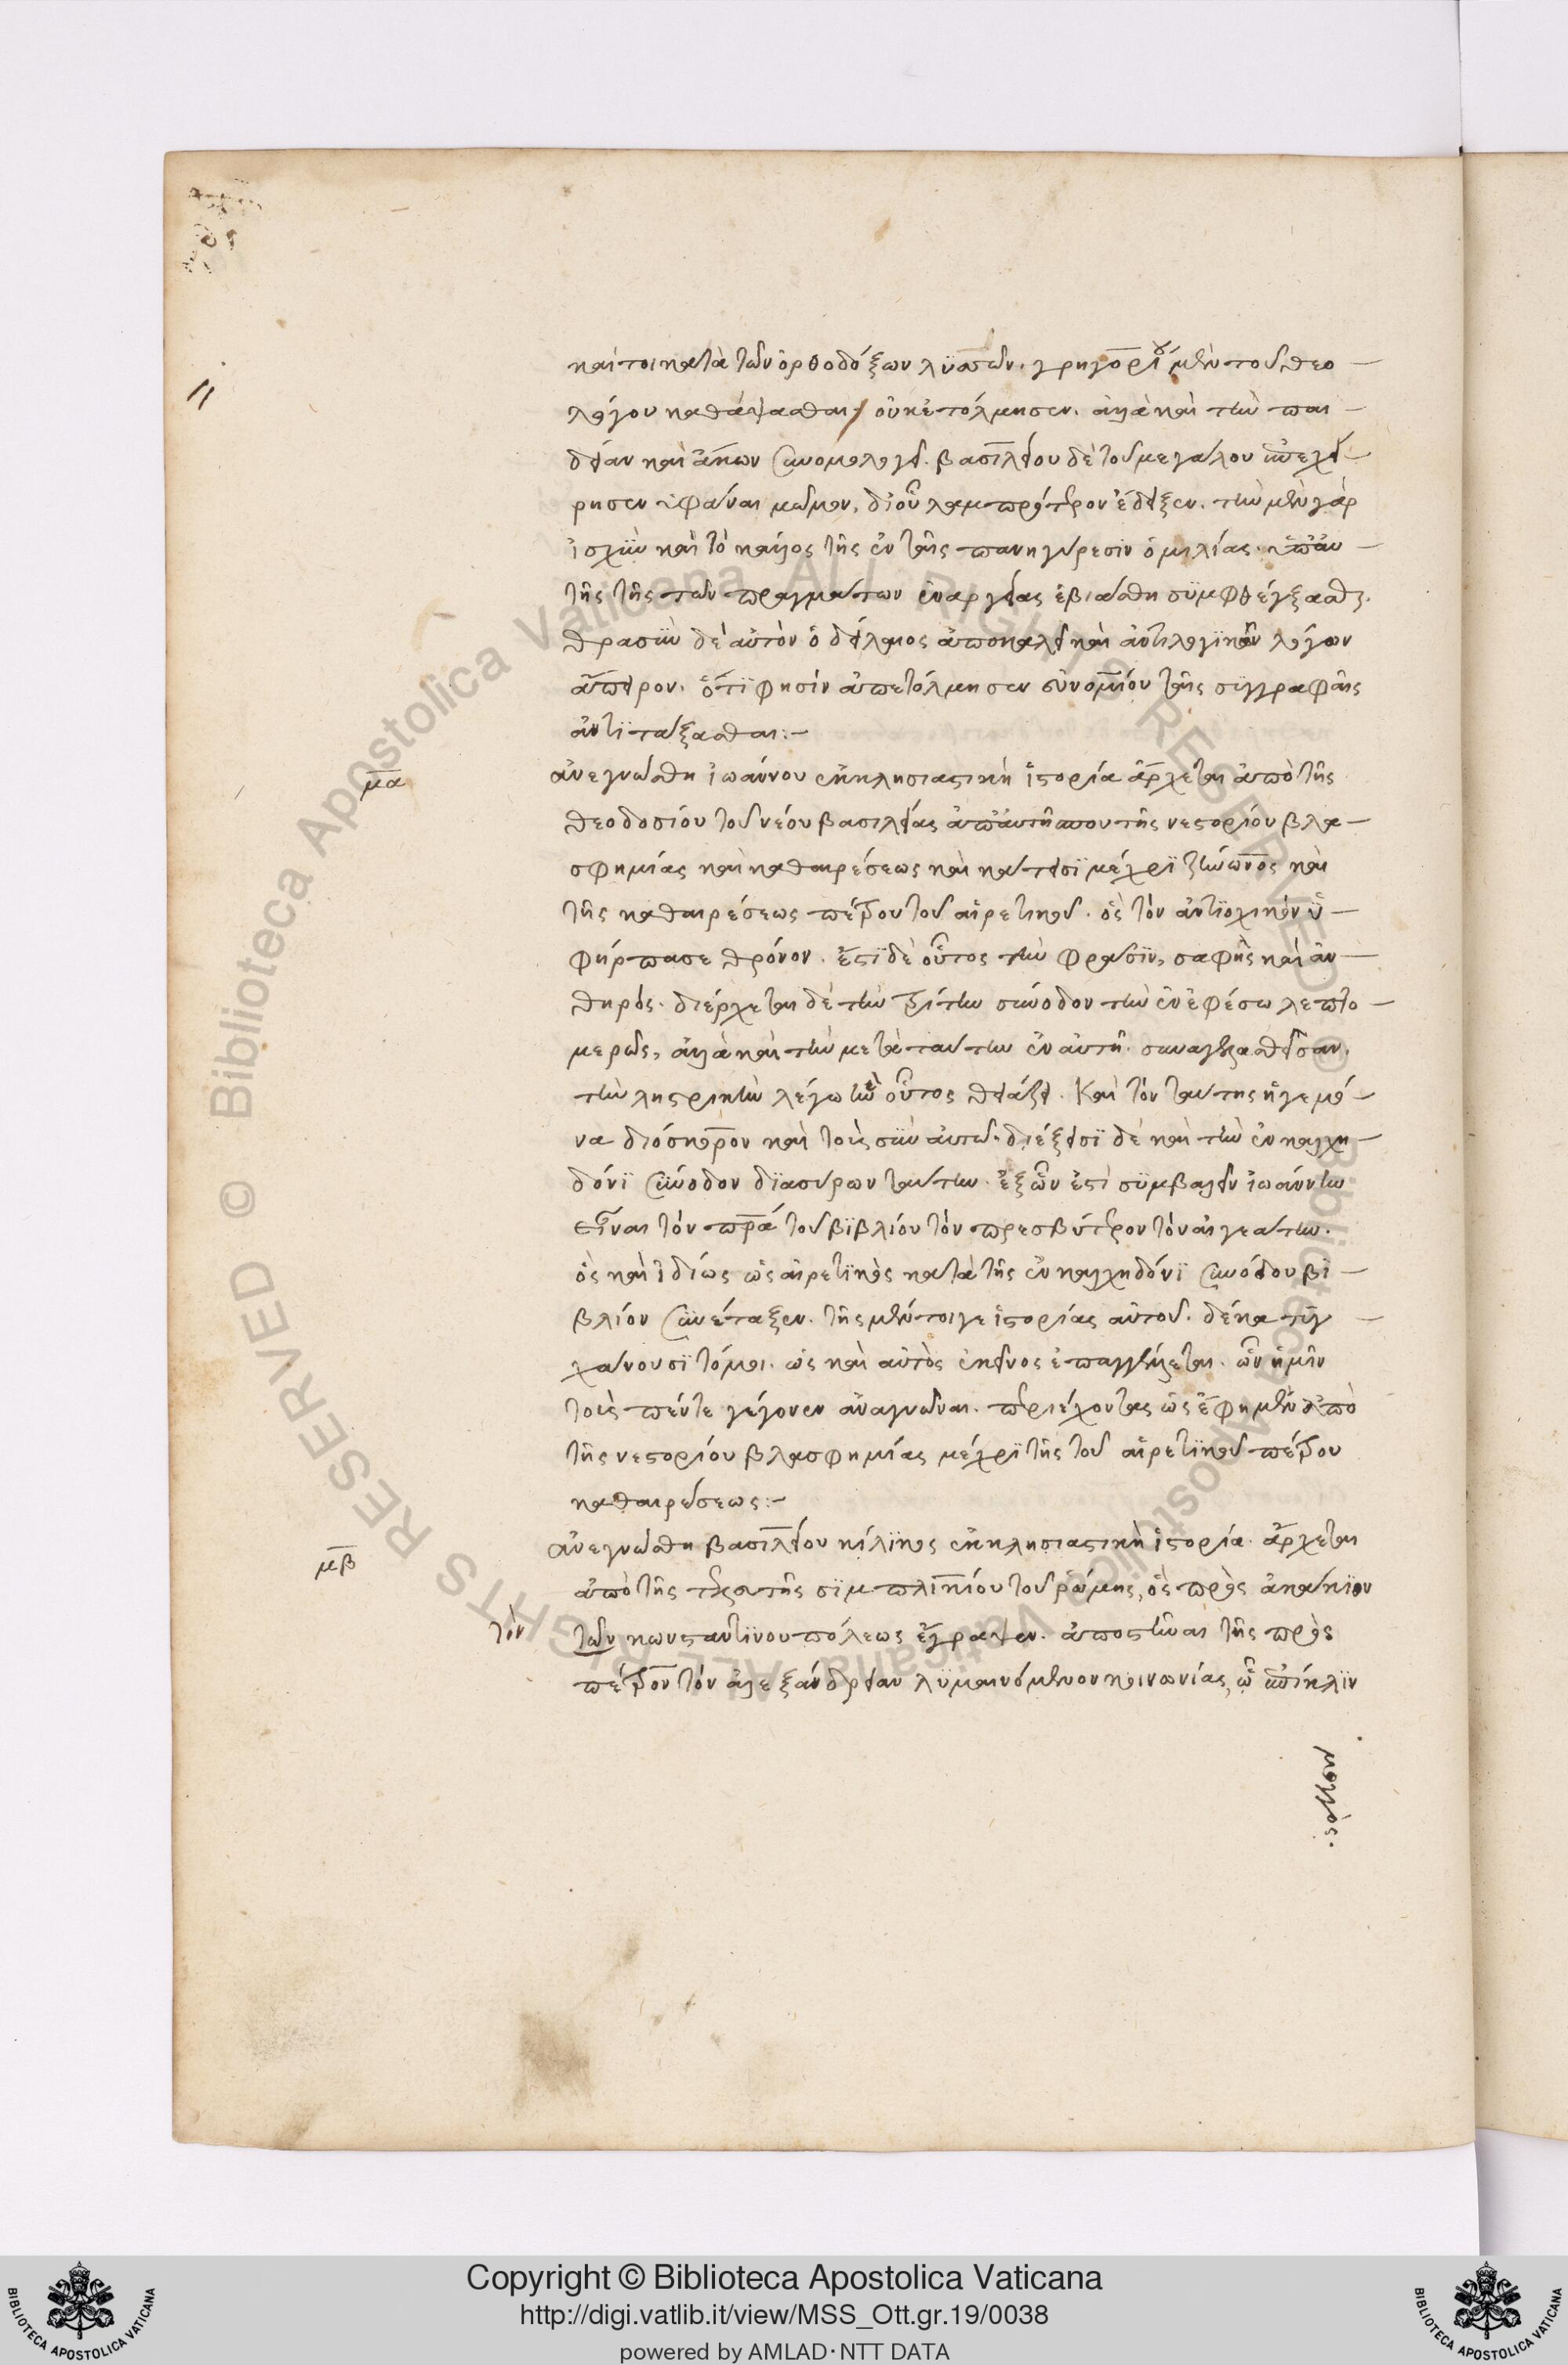 καίτοι κατὰ τῶν ὀρθοδόξων λυττῶν. γρηγορίου μὲν τοῦ θεο–
λόγου καθάψασθαι οὐκ ἐτόλμησεν. ἀλλὰ καὶ τὴν παι–
δείαν καὶ ἄκων συνομολογεῖ. βασιλείου δὲ τοῦ μεγάλου ἐπεχεί–
ρησεν ὑφᾶναι μῶμον, δι' οὗ λαμπρότερον ἔδειξεν. τὴν μὲν γὰρ
ἰσχὺν καὶ τὸ κάλλος τῆς ἐν ταῖς πανηγύρεσιν ὁμιλίας. ὑπ' αὐ–
τῆς τῆς τῶν πραγμάτων ἐναργείας ἐβιάσθη συμφθέγξασθαι.
θρασὺν δὲ αὐτὸν ὁ δείλαιος ἀποκαλεῖ καὶ ἀντιλογικῶν λόγων
ἄπειρον. ὅτι φησὶν ἀπετόλμησεν εὐνομίου ταῖς συγγραφαῖς
ἀντιτάξασθαι:–
μα ἀνεγνώσθη ἰωάννου ἐκκλησιαστικὴ ἱστορία ἄρχεται ἀπὸ τῆς
θεοδοσίου τοῦ νέου βασιλείας ἀπ' αὐτῆς που τῆς νεστορίου βλα–
σφημίας καὶ καθαιρέσεως καὶ κάτεισι μέχρι ζήνωνος καὶ
τῆς καθαιρέσεως πέτρου τοῦ αἱρετικοῦ. ὃς τὸν ἀντιοχικὸν ὑ–
φήρπασε θρόνον. ἔστι δὲ οὗτος τὴν φράσιν, σαφὴς καὶ ἀν–
θηρός. διέρχεται δὲ τὴν τρίτην σύνοδον τὴν ἐν ἐφέσω λεπτο–
μερῶς, ἀλλὰ καὶ τὴν μετὰ ταύτην ἐν αὐτῆ. συναγελασθεῖσαν.
τὴν ληστρικὴν λέγω ἣν οὗτος θειάζει. Καὶ τὸν ταύτης ἡγεμό–
να διόσκορον καὶ τοὺς σὺν αὐτῶ. διέξεισι δὲ καὶ τὴν ἐν καλχη–
δόνι σύνοδον διασύρων ταύτην. ἐξ ὧν ἐστὶ συμβαλεῖν ἰωάννην
εἶναι τὸν πρα τοῦ βιβλίου τὸν πρεσβύτερον τὸν αἰγεάτην.
ὃς καὶ ἰδίως ὡς αἱρετικὸς κατὰ τῆς ἐν καλχηδόνι συνόδου βι–
βλίον συνέταξεν. τῆς μέντοιγε ἱστορίας αὐτοῦ. δέκα τυγ–
χάνουσι τόμοι. ὡς καὶ αὐτὸς ἐκεῖνος ἐπαγγέλλεται. ὧν ἡμῖν
τοὺς πέντε γέγονεν ἀναγνῶναι. περιέχοντας ὡς ἔφημεν ἀπὸ
τῆς νεστορίου βλασφημίας μέχρι τῆς τοῦ αἱρετικοῦ πέτρου
καθαιρέσεως:–
μβ ἀνεγνώσθη βασιλείου κίλικος ἐκκλησιαστικὴ ἱστορία. ἄρχεται
ἀπὸ τῆς τελευτῆς σιμπλικίου τοῦ ῥώμης, ὃς πρὸς ἀκάκιον
τὸν τῶν κωνσταντινουπόλεως ἔγραψεν. ἀποστῆναι τῆς πρὸς
πέτρον τὸν ἀλεξάνδρειαν λυμαινόμενον κοινωνίας, ὧ ἐπίκλην
μογγός.